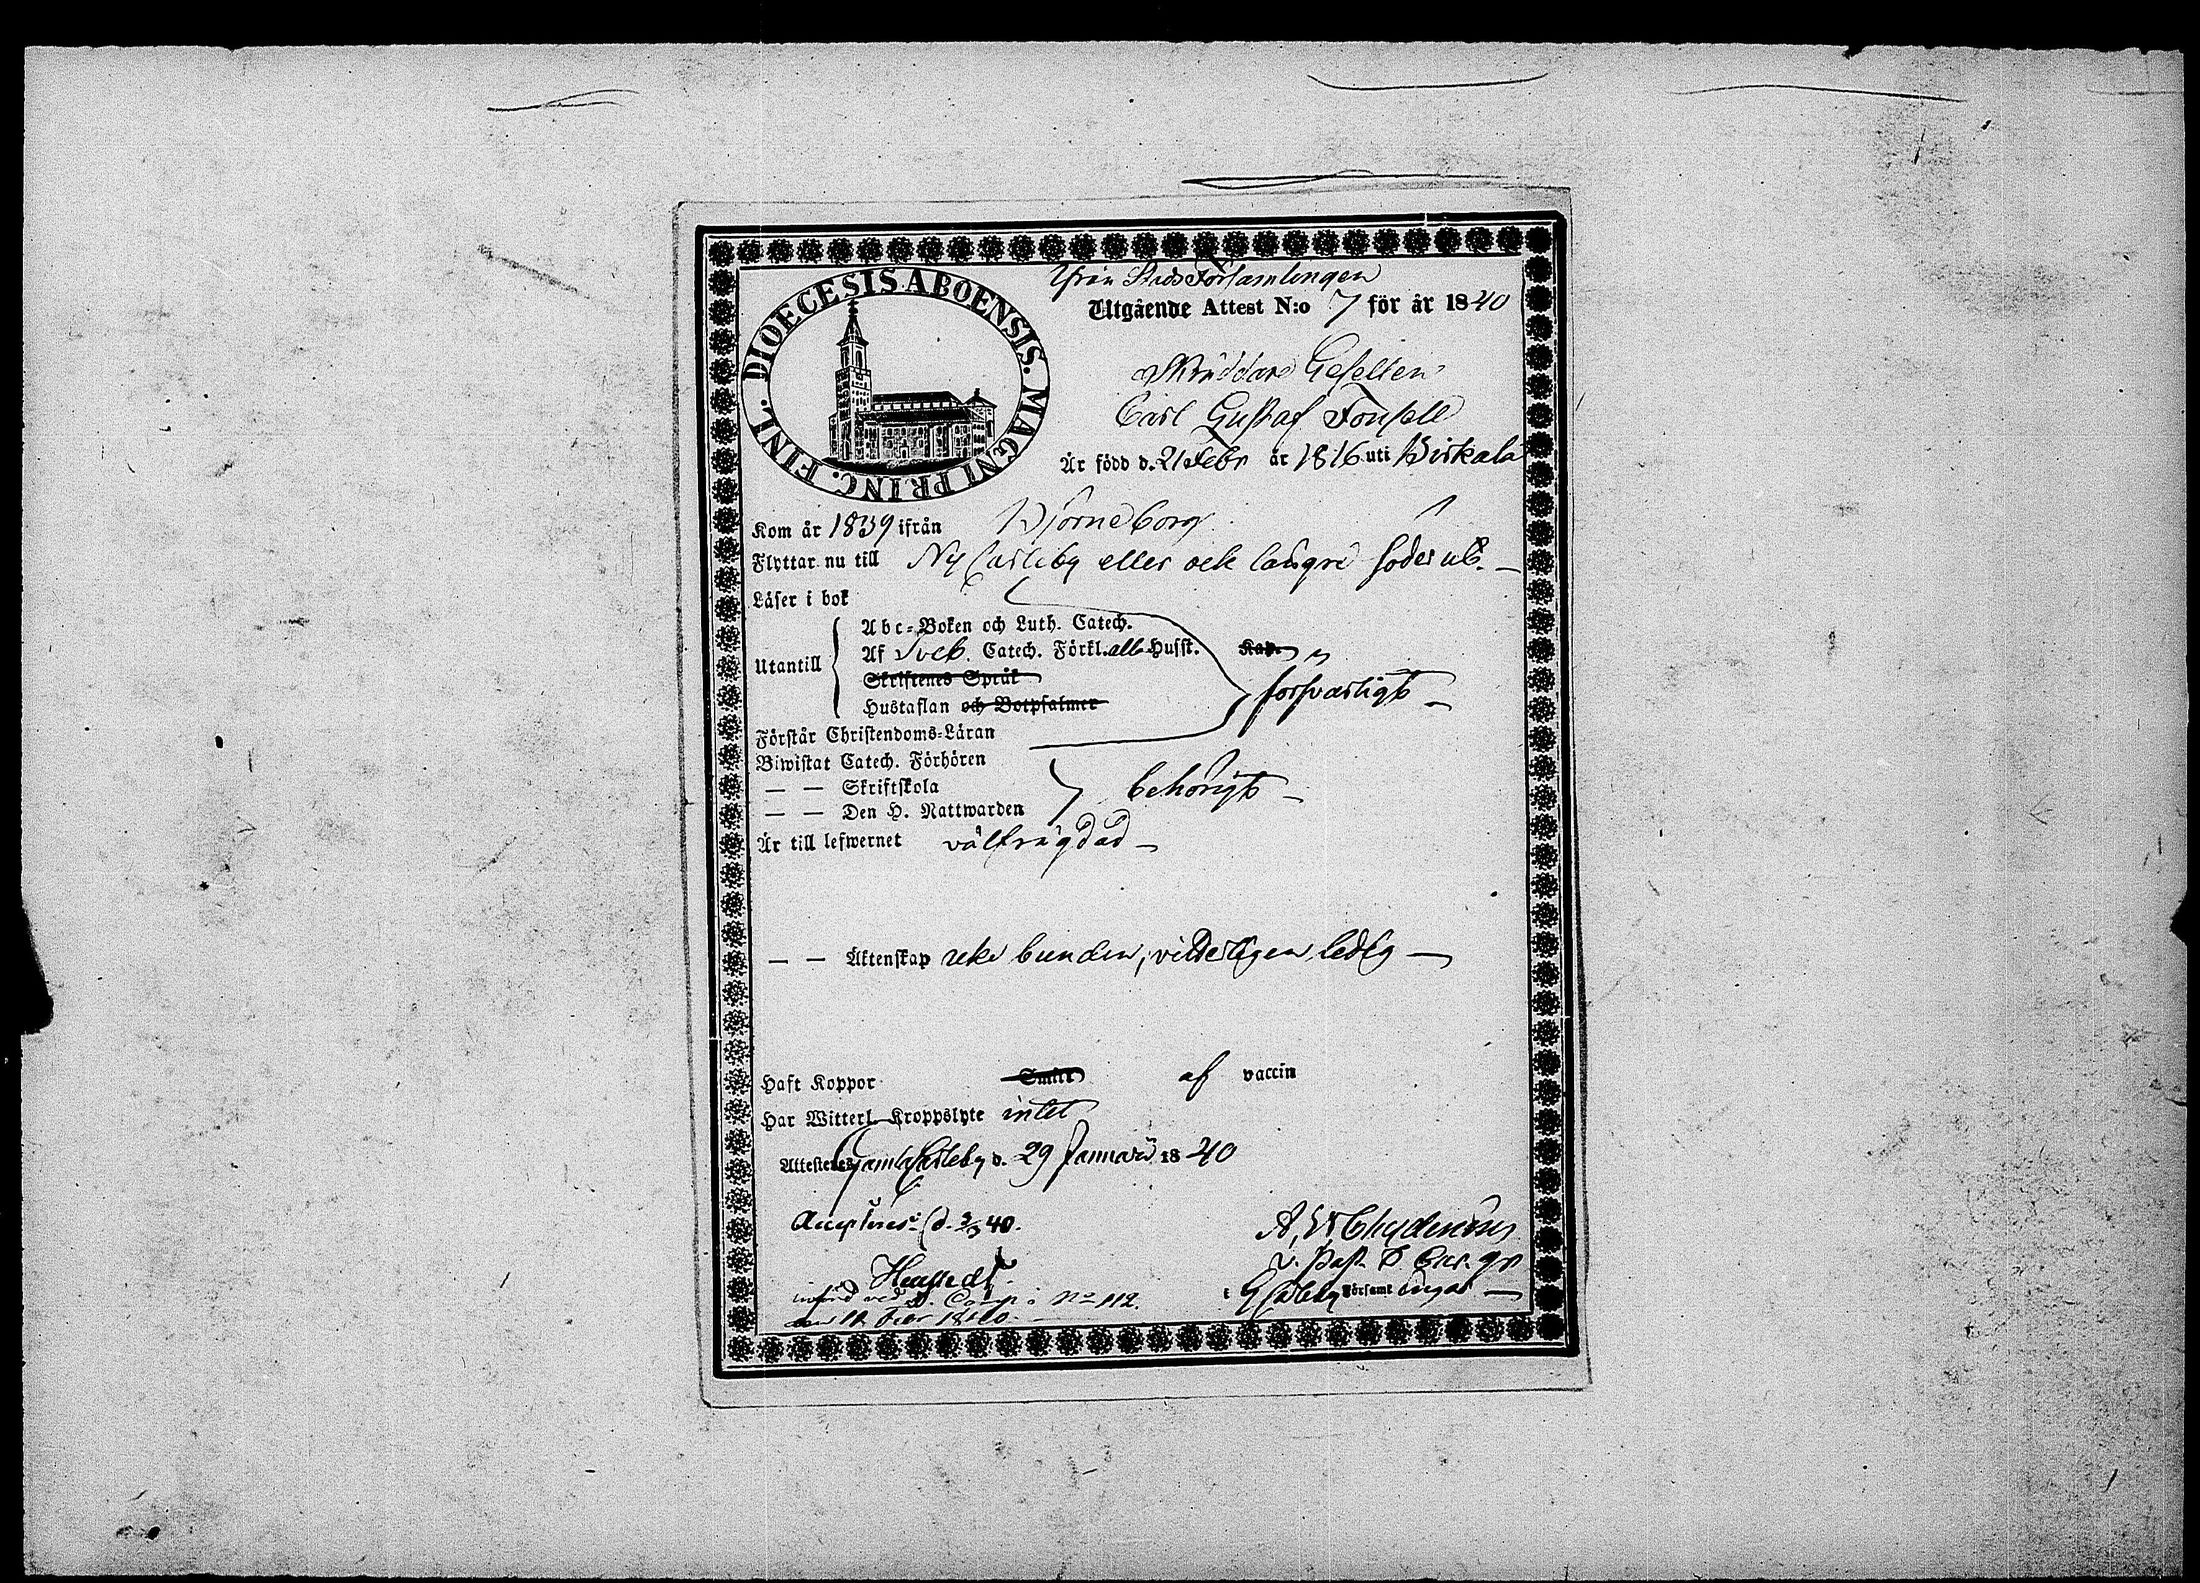 DIOECESIS ABOENSIS. MAGNI PRINC. FINL.
ifrån Stads Församlingen
Utgående Attest N:o 7 för år 1840
Skräddare Gesellen
Carl Gustaf Fonsell
Är född d. 21 Febr år 1816 uti Birkala
Kom år 1839 ifrån Björneborg
Flyttar nu till Ny Carleby eller ock längre söder ut. —
Läser i bok
Utantill
Abc-Boken och Luth. Catech.
Af Sveb. Catech. Förkl. alla Husst. Kap.
Skriftenes Språk
Hustaflan och Botpsalmer
försvarligt —
Förstår Christendoms-Läran
Biwistat Catech. Förhören
— — Skriftskola
— — Den H. Nattwarden
behörigt —
Är till lefwernet välfrägdad —
— — Äktenskap icke bunden, ledig —
Haft Koppor Smitt af vaccin
Har Witterl. Kroppslyte intet
Attesteres Gamla Carleby d. 29 Januari 1840
Accepteras: d. 3/3 40.
A. W. Chydenius
v. Past.
i GCarleby Församlingar —
införd ved N:o 112.